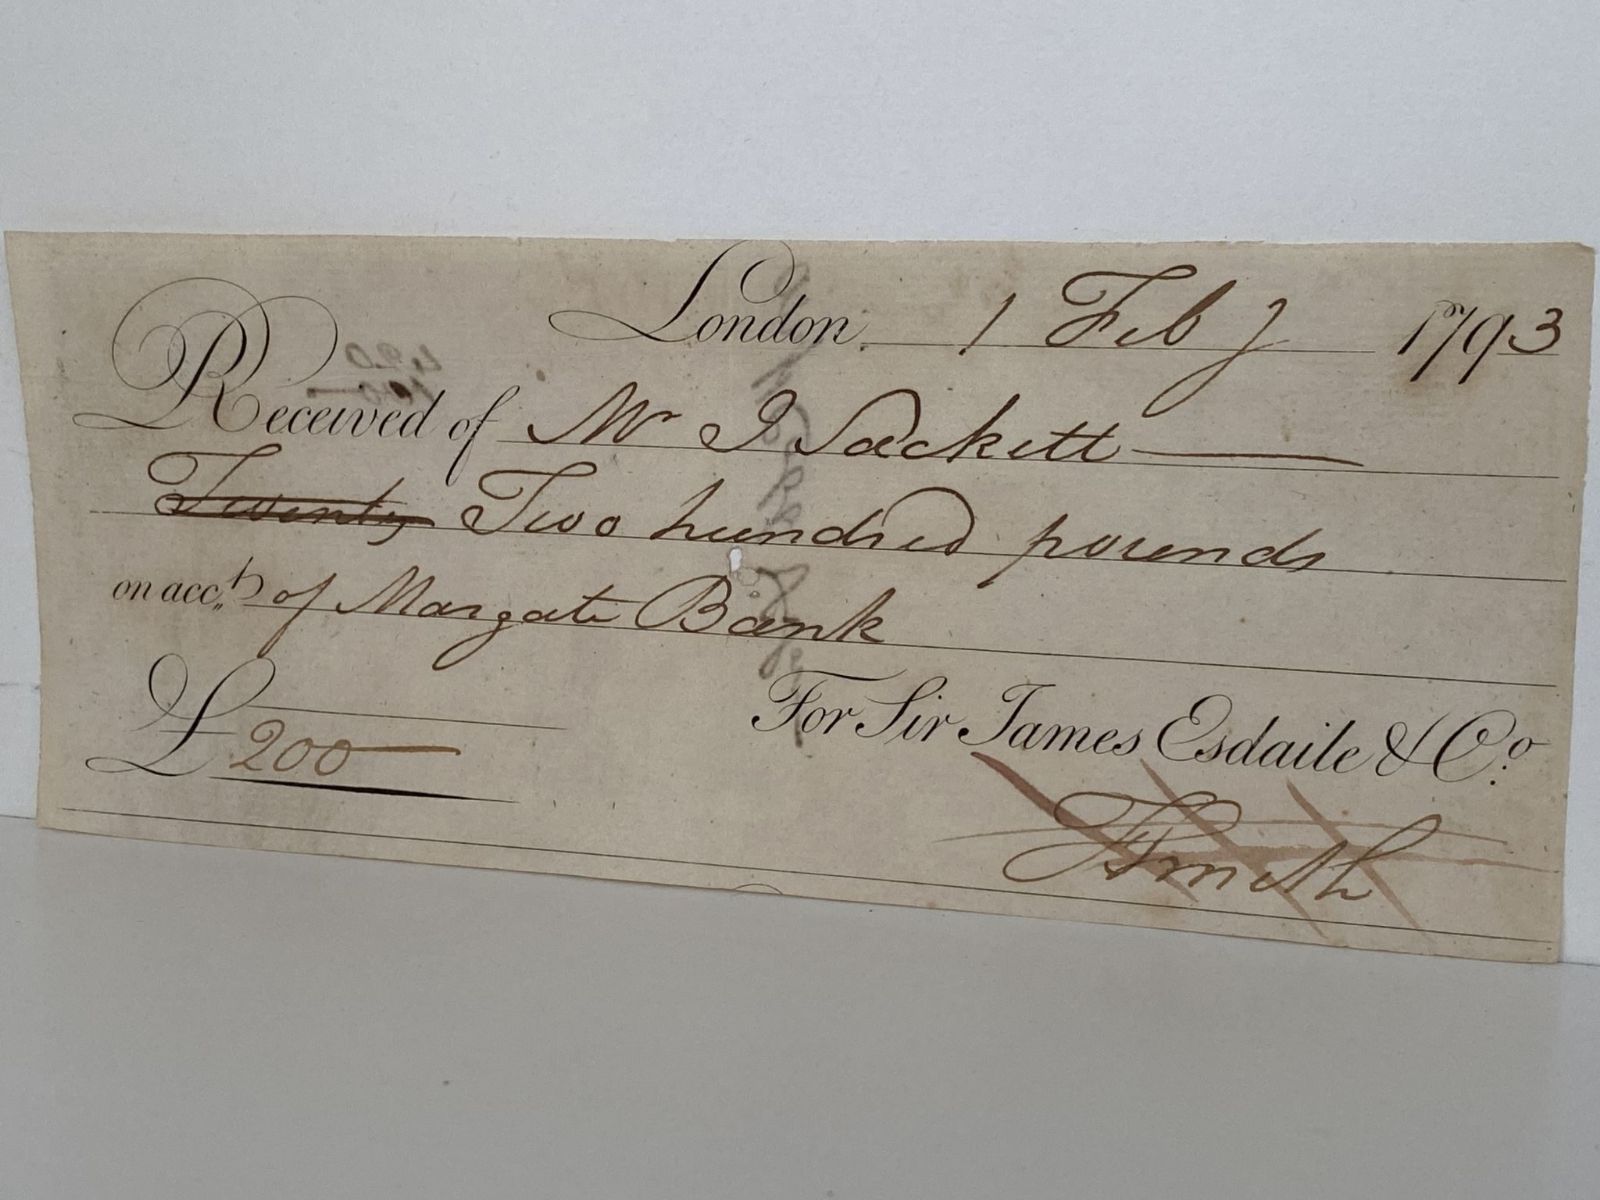 London 1 Feby 1793
Received of Mr J Sackett
Twenty Two hundred pounds
on acct. of Margate Bank
£200
For Sir James Esdaile & Co.
Smith